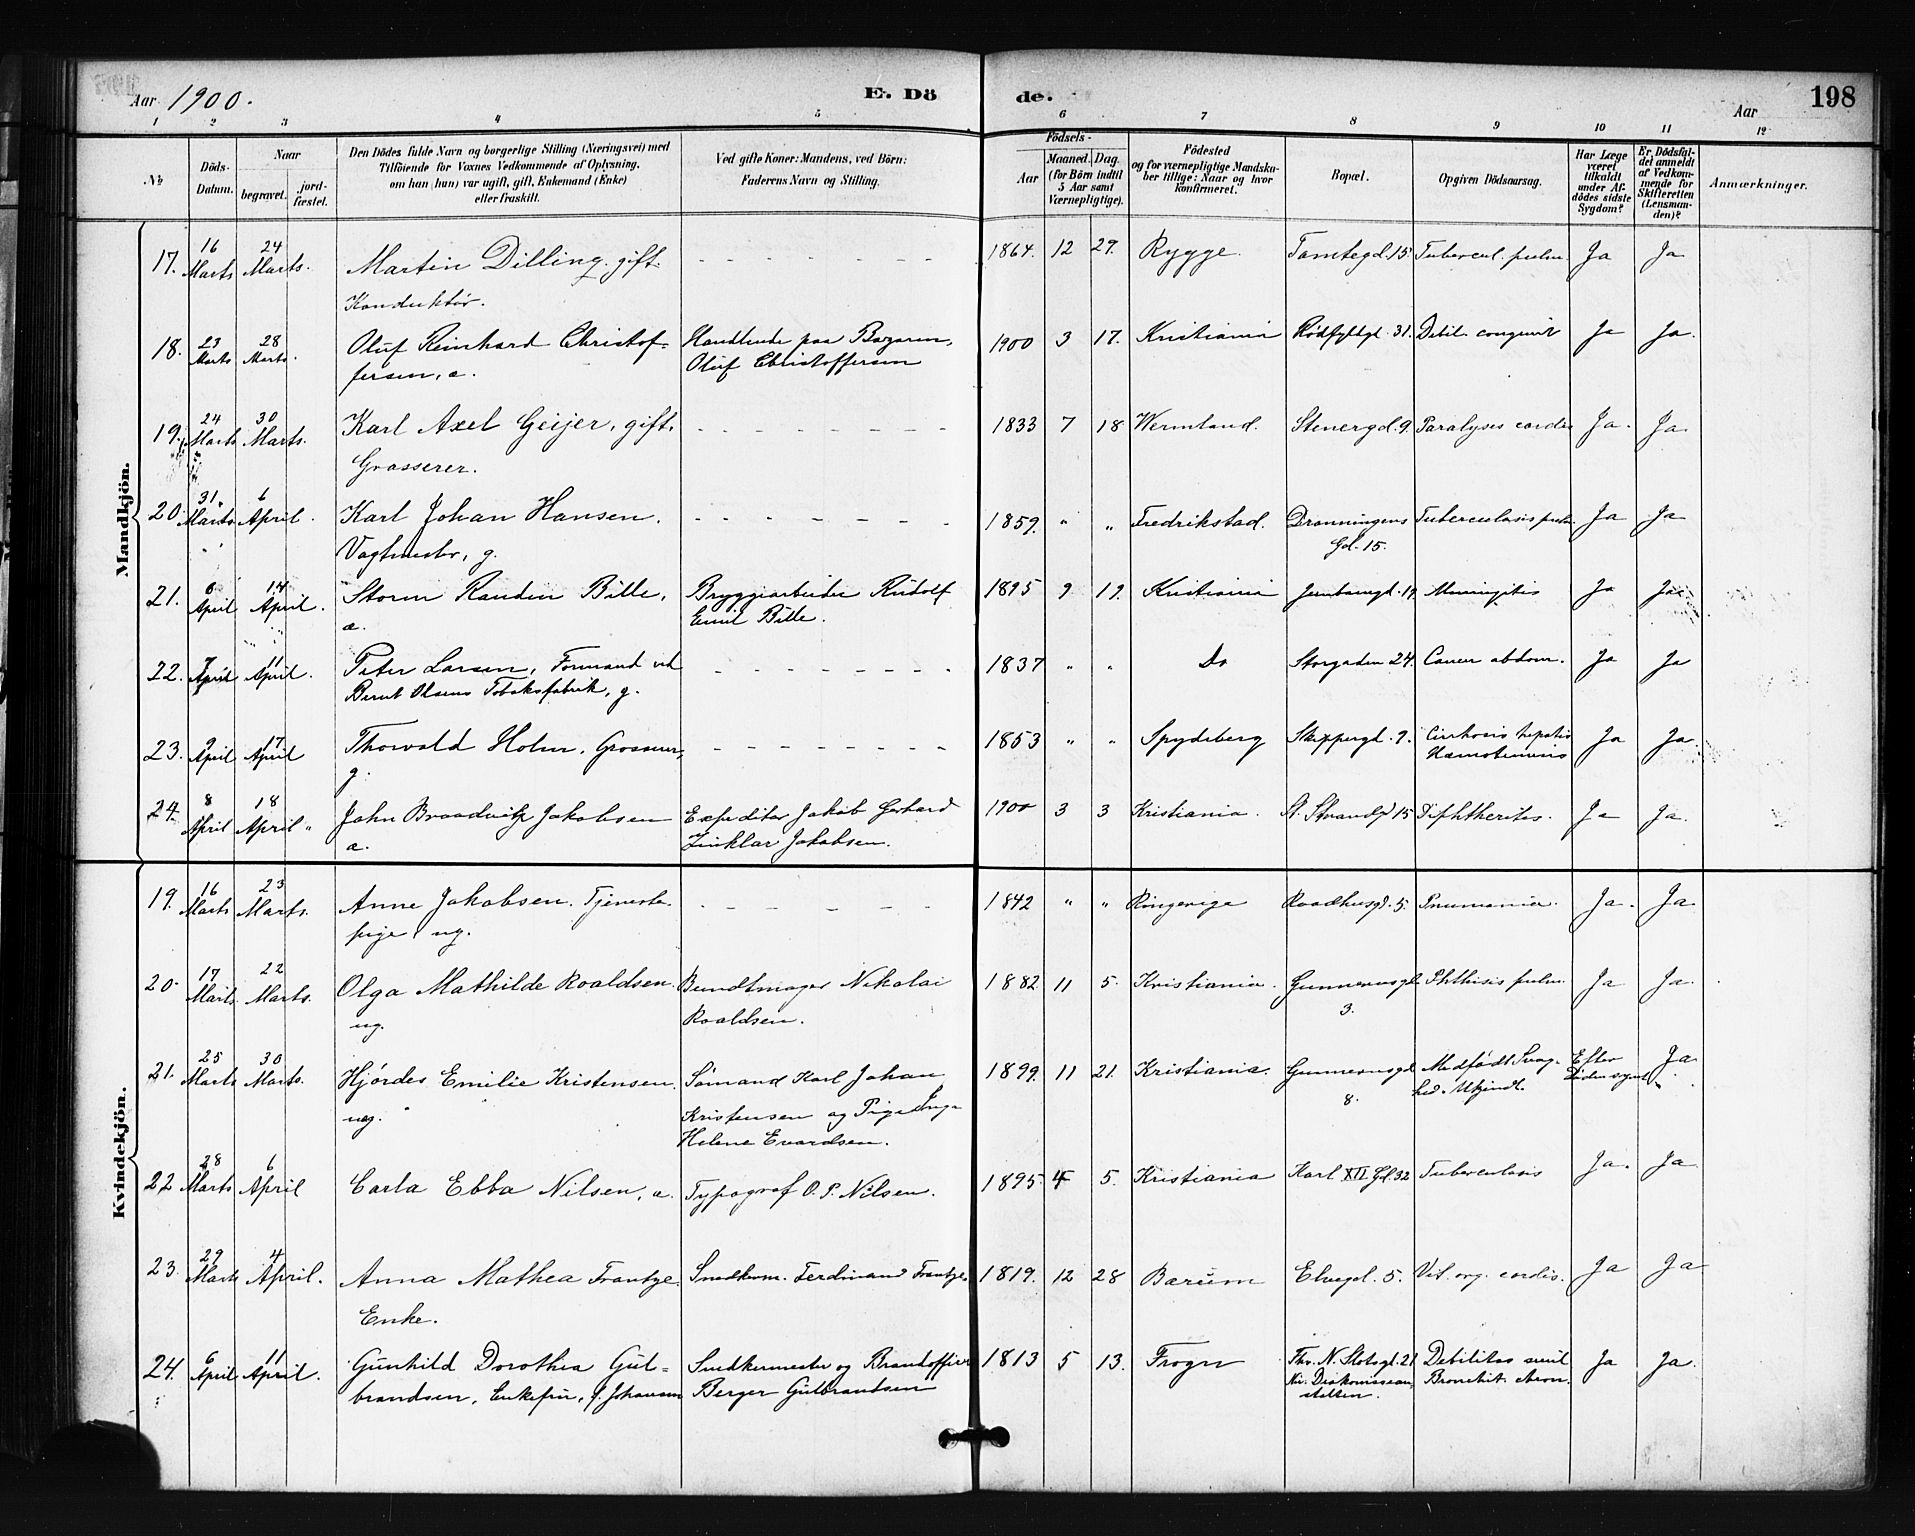 Aar 1900.
E. Dö
de.
Aar
198
1 2 3 4 5 6 7 8 9 10 11 12
No
Döds-Datum.
Naar
begravet.
jord-fæstet.
Den Dödes fulde Navn og borgerlige Stilling (Næringsvei) med
Tilföiende for Voxnes Vedkommende af Oplysning,
om han (hun) var ugift, gift, Enkemand (Enke)
eller fraskilt.
Ved gifte Koner: Mandens, ved Börn:
Faderens Navn og Stilling.
Födsels-
Aar
Maaned. Dag.
(for Börn indtil
5 Aar samt
Værnepligtige).
Födested
og for værnepligtige Mandska-
ber tillige: Naar og hvor
konfirmeret.
Bopæl.
Opgiven Dödsaarsag.
Har Læge
været
tilkaldt
under Af-
dödes sidste
Sygdom?
Er Dödsfal-
det anmeldt
af Vedkom-
mende for
Skifteretten
(Lensman-
den)?
Anmærkninger.
Mandkjön.
17. 16 Marts 24 Marts. Martin Dilling. gift. 1864. 12 29. Rygge. Tomtegd. 15 Tubercul. pulm. Ja Ja
Konduktör.
18. 23 Marts 28 Marts. Oluf Reinhard Christof- Handlende paa Bazaren, 1900 3 17. Kristiania Rødfyldgt. 31. Debil. congenit Ja Ja.
fersen, e. Oluf Christoffersen
19. 24 Marts 30 Marts. Karl Axel Geijer, gift. 1833 7 18 Wermland. Stenergd. 9. Paralyses cordis Ja. Ja.
Grosserer.
20. 31 Marts 6 April. Karl Johan Hansen. 1859. " " Fredrikstad. Dronningens Tuberculosis pulm. Ja Ja
Vagtmester, g. Gd. 15.
21. 6 April 14 April. Storm Randin Bille, Bryggiarbeider Rudolf 1895 9 19. Kristiania Jernbanegd. 19 Meningitis Ja Ja
e. Emil Bille.
22. 7 April 11 April. Peter Larsen, Formand ved 1837 " " Do Storgaden 24. Cancer abdom. Ja Ja
Bernt Olsens Tobaksfabrik, g.
23. 9 April 17 April Thorvald Holm, Grosserer, 1853 " " Spydeberg Skippergd. 9. Cirrhosis hepatis Ja Ja
g. Hæmatemesis
24. 8 April 18 April " John Braadvitz Jakobsen Expeditør Jakob Gerhard 1900 3 3 Kristiania. St. Strandg 15 Diphtheritis. Ja Ja.
e. Zinklar Jakobsen.
Kvindekjön.
19. 16 Marts 23 Marts. Anne Jakobsen. Tjeneste- 1842 " " Ringerige Raadhusgd. 5. Pneumonia. Ja. Ja.
pige, ug.
20. 17 Marts 22 Marts. Olga Mathilde Roaldsen. Bundtmager Nikolai 1882 11 5. Kristiania. Gunnerusgd. Phthisis pulm. Ja Ja.
ug. Roaldsen. 3.
21. 25 Marts 30 Marts. Hjørdes Emilie Kristensen. Sømand Karl Johan 1899. 11 21. Kristiania. Gunnerusgd. Medfødt Svag- Efter Ja.
ueg. Kristensen og Pige Inga 8. hed. Ukjendt. Döden synet "
Helene Evardsen.
22 28 Marts 6 April Carla Ebba Nilsen, e. Typograf O. P. Nilsen. 1895 4 5. Kristiania Karl XII Gd. 32 Tuberculosis Ja. Ja
23. 29 Marts 4 April. Anna Mathea Frantze. Snedkerm. Ferdinand Frantze. 1819. 12 28 Bærum Elvegd. 5. Vit. org. cordis. Ja Ja
Enke.
24. 6 April 11 April. Gunhild Dorothea Gul- Snedkermester og Brandofficer 1813 5 13. Frogn Thv. N. Slotsgt. 21 Debilitas senil Ja Ja.
brandsen, Enkefru, f. Johansen Berger Gulbrandsen Nu. Diakonissean- Bronchit. chron.
stalten.